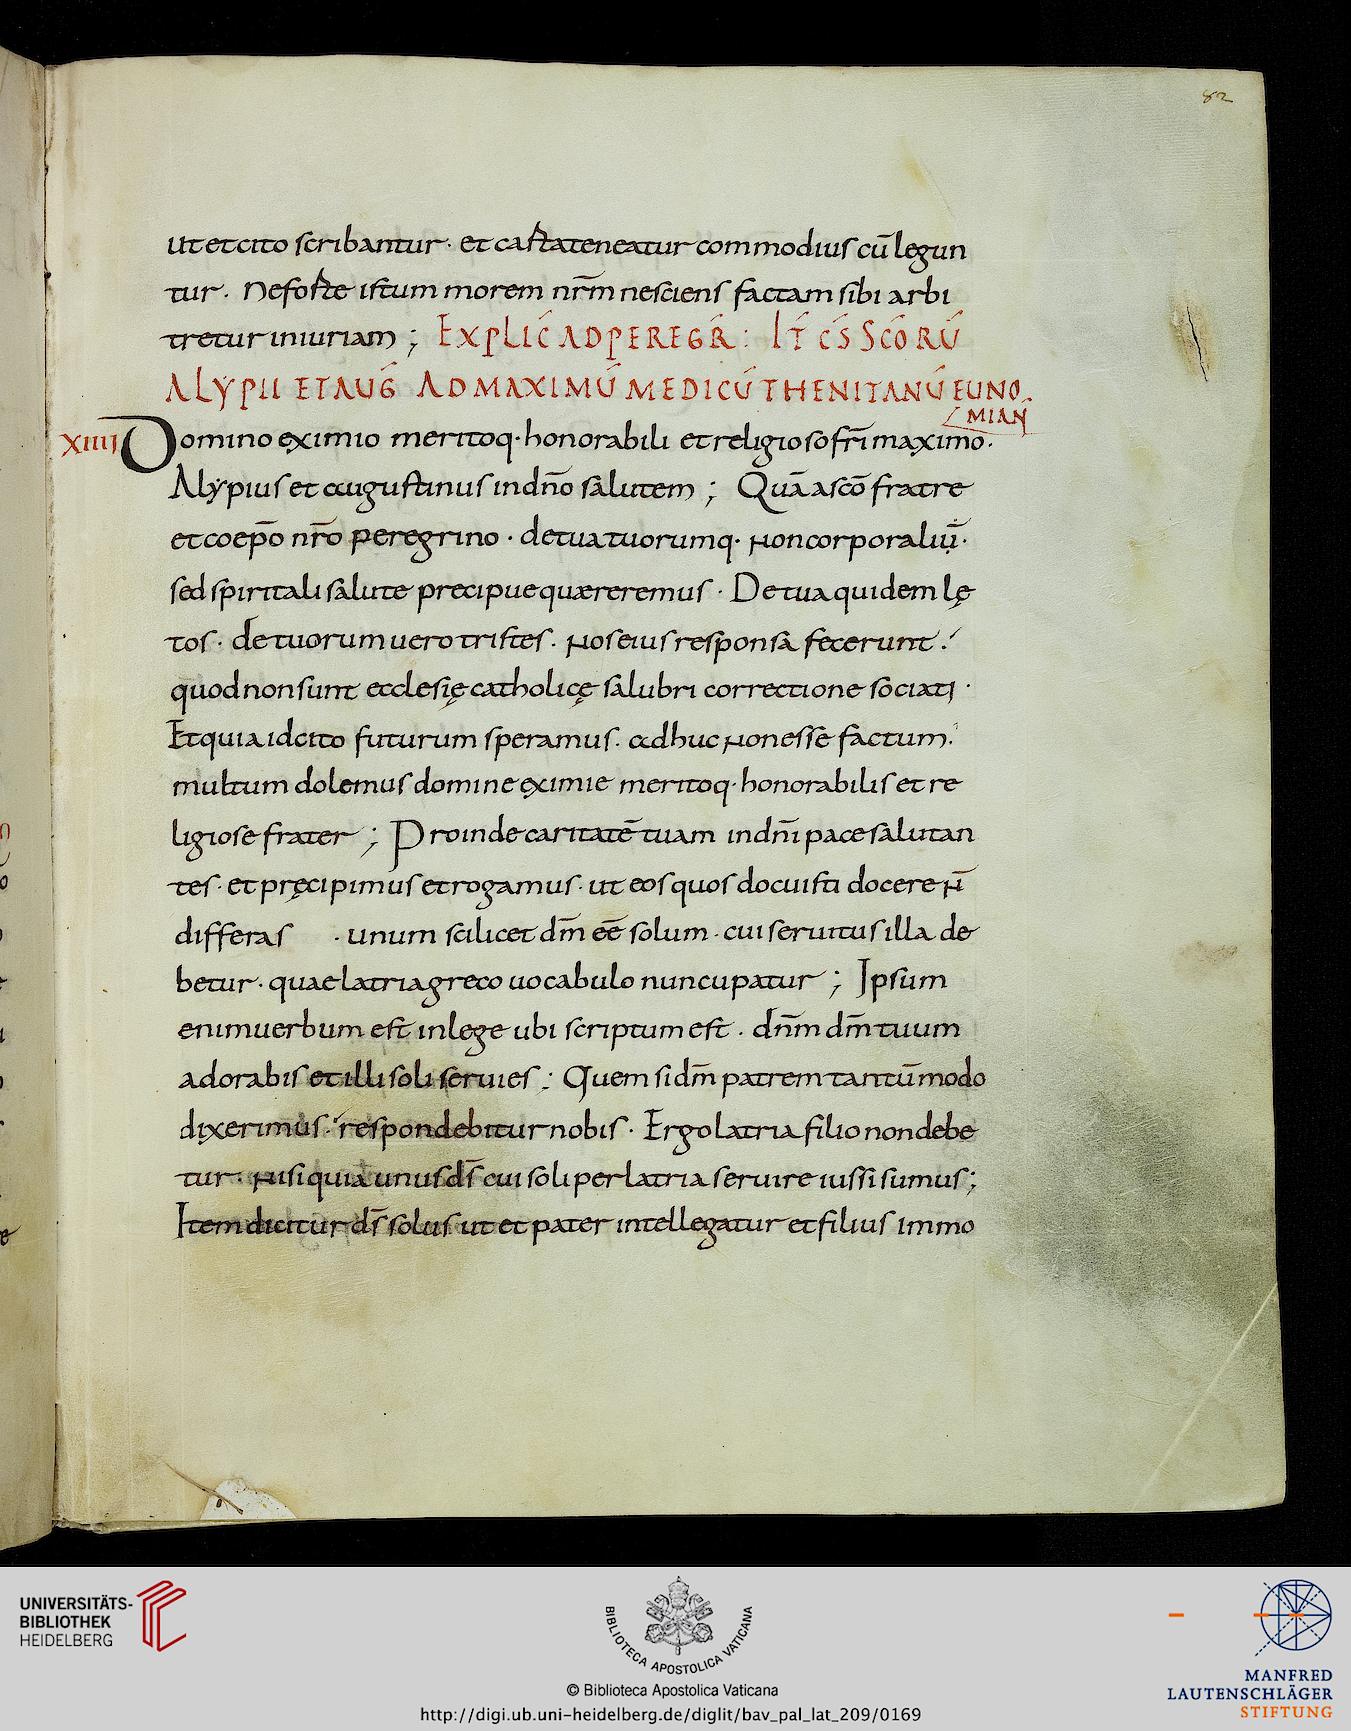 82
ut et cito scribantur · et caſta teneatur commodius cū legun
tur · Ne foſte iſtum morem nr̄m nesciens factam sibi arbi
tretur iniuriam ; EXPLIC̄ AD PEREGR̄ : IT̄ C̄S SC̄ORŪ
ALYPII ET AUḠ AD MAXIMŪ MEDICŪ THENITANŪ EUNO
MIAN̄
XIIII Domino eximio meritoq· honorabili et religioso fr̄i maximo ·
Alypius et augustinus in dn̄o salutem ; Quā a sc̄o fratre
et coep̄o nr̄o peregrino · de tua tuorumq· non corporaliū ·
sed spiritali salute precipue quæreremus · De tua quidem lę
tos · de tuorum uero tristes · nos eius responsa fecerunt ·
quod non sunt ecclesię catholicę salubri correctione sociati ·
Et quia id cito futurum speramus · adhuc non esse factum ·
multum dolemus domine eximie meritoq· honorabilis et re
ligiose frater ; Proinde caritatē tuam in dn̄i pace salutan
tes · et pręcipimus et rogamus · ut eos quos docuisti docere n̄
differas · unum scilicet dm̄ eē solum · cui seruitus illa de
betur · quae latria greco uocabulo nuncupatur ; Ipsum
enim uerbum est in lege ubi scriptum est · dn̄m dm̄ tuum
adorabis et illi soli seruies ; Quem si dm̄ patrem tantūmodo
dixerimus · respondebitur nobis · Ergo latria filio non debe
tur · nisi quia unus ds̄ cui soli per latria seruire iussi sumus ;
Item dicitur ds̄ solus ut et pater intellegatur et filius immo
UNIVERSITÄTS-
BIBLIOTHEK
HEIDELBERG
BIBLIOTECA APOSTOLICA VATICANA
© Biblioteca Apostolica Vaticana
http://digi.ub.uni-heidelberg.de/diglit/bav_pal_lat_209/0169
MANFRED
LAUTENSCHLÄGER
STIFTUNG